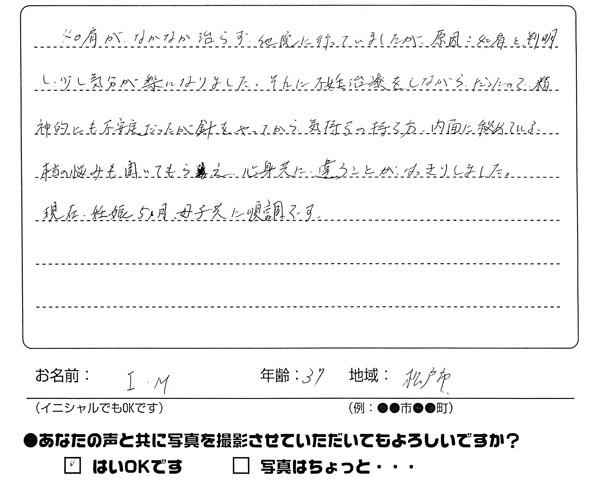 五十肩が、なかなか治らず、他院に行っていましたが、原因：五十肩と判明
し、少し気分が楽になりました。それに不妊治療をしながら だったので、精
神的にも不安定だったが針をやってから、気持ちの持ち方、内面に秘めている
精の悩みも聞いてもらえ、心身共に違うことがはっきりしました。
現在、妊娠5ヵ月、母子共に順調です。
お名前： I.M 年齢：37 地域： 松戸市
（イニシャルでもOKです） （例：●●市●●町）
●あなたの声と共に写真を撮影させていただいてもよろしいですか？
☑ はいOKです □ 写真はちょっと・・・